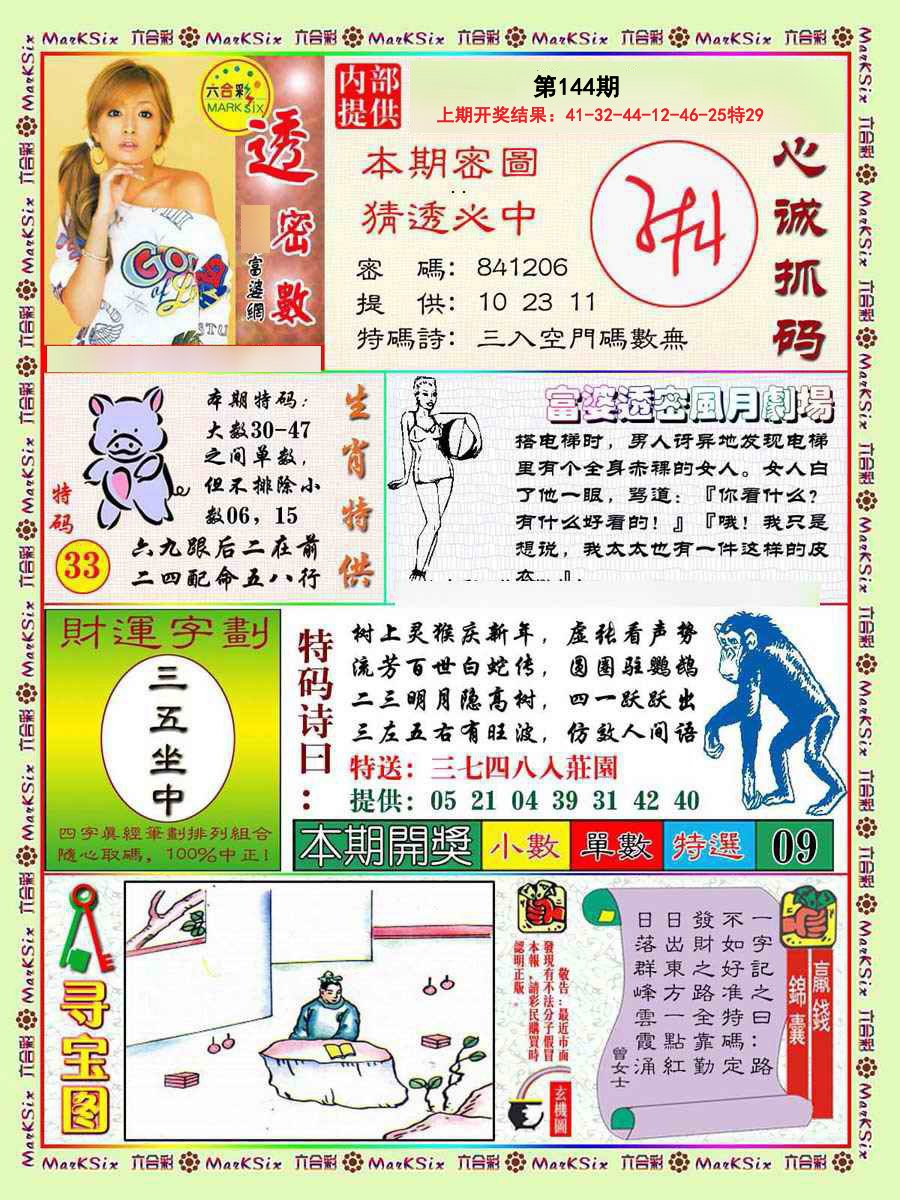 MarKSix 六合彩 MarKSix 六合彩 MarKSix 六合彩 MarKSix 六合彩 MarKSix 六合彩
六合彩
MARK SIX
透密數
富婆網
内部
提供
第144期
上期开奖结果：41-32-44-12-46-25特29
本期密圖
猜透必中
密　碼：841206
提　供：10 23 11
特碼詩：三入空門碼數無
心诚抓码
本期特码：
大数30-47
之间单数，
但不排除小
数06，15
六九跟后二在前
二四配命五八行
生肖特供
特码
33
富婆透密風月劇場
搭电梯时，男人讶异地发现电梯
里有个全身赤裸的女人。女人白
了他一眼，骂道：『你看什么？
有什么好看的！』『哦！我只是
想说，我太太也有一件这样的皮
財運字劃
三五坐中
四字眞經筆劃排列組合
隨心取碼，100%中正!
特码诗曰：
树上灵猴庆新年，虚张看声势
流芳百世白蛇传，圆圈驻鹦鹉
二三明月隐高树，四一跃跃出
三左五右有旺波，仿效人间语
特送：三七四八入莊園
提供：05 21 04 39 31 42 40
本期開獎 小數 單數 特選 09
寻宝图
敬告：最近市面
發現有不法分子假冒
本報，請彩民購買時
認明正版。
玄機圖
贏錢
錦囊
一字記之曰：路
不如好准特碼定
發財之路全靠勤
日出東方一點紅
日落群峰雲霞涌
曾女士
MarKSix 六合彩 MarKSix 六合彩 MarKSix 六合彩 MarKSix 六合彩 MarKSix 六合彩